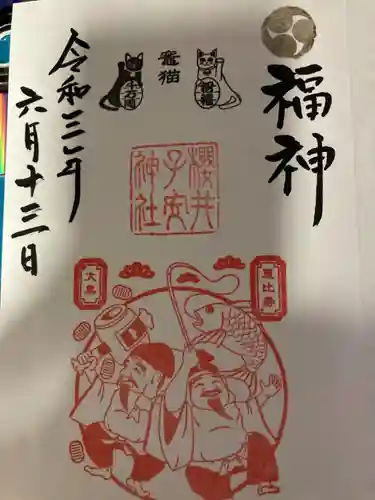 福神
招福
竈猫
千万両
櫻井
子安
神社
恵比寿
大黒
令和三年
六月十三日